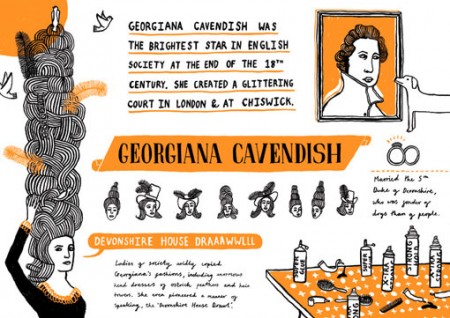 GEORGIANA CAVENDISH WAS
THE BRIGHTEST STAR IN ENGLISH
SOCIETY AT THE END OF THE 18TH
CENTURY. SHE CREATED A GLITTERING
COURT IN LONDON & AT CHISWICK.
GEORGIANA CAVENDISH
Married the 5th
Duke of Devonshire,
who was fonder of
dogs than of people.
DEVONSHIRE HOUSE DRAAAWWLLL
Ladies of society wildly copied
Georgiana's fashions, including enormous
head dresses of ostrich feathers and hair
towers. She even pioneered a manner of
speaking, the 'Devonshire House Drawl'.
SUPER
GLUE
SUPER
X-TRA
STRONG
STRONG
X-TRA
STRONG